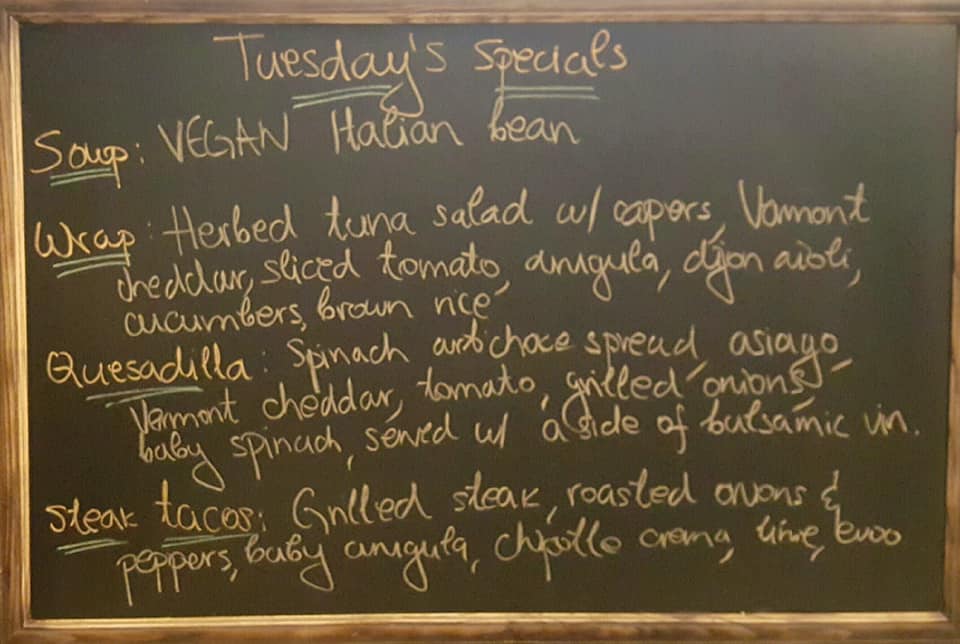 Tuesday's Specials
Soup: VEGAN Italian bean
Wrap: Herbed tuna salad w/ capers, Vermont
cheddar, sliced tomato, arugula, dijon aioli,
cucumbers, brown rice
Quesadilla: Spinach artichoce spread, asiago,
Vermont cheddar, tomato, grilled onions,
baby spinach, served w/ a side of balsamic vin.
Steak tacos: Grilled steak, roasted onions &
peppers, baby arugula, chipotle crema, lime, evoo